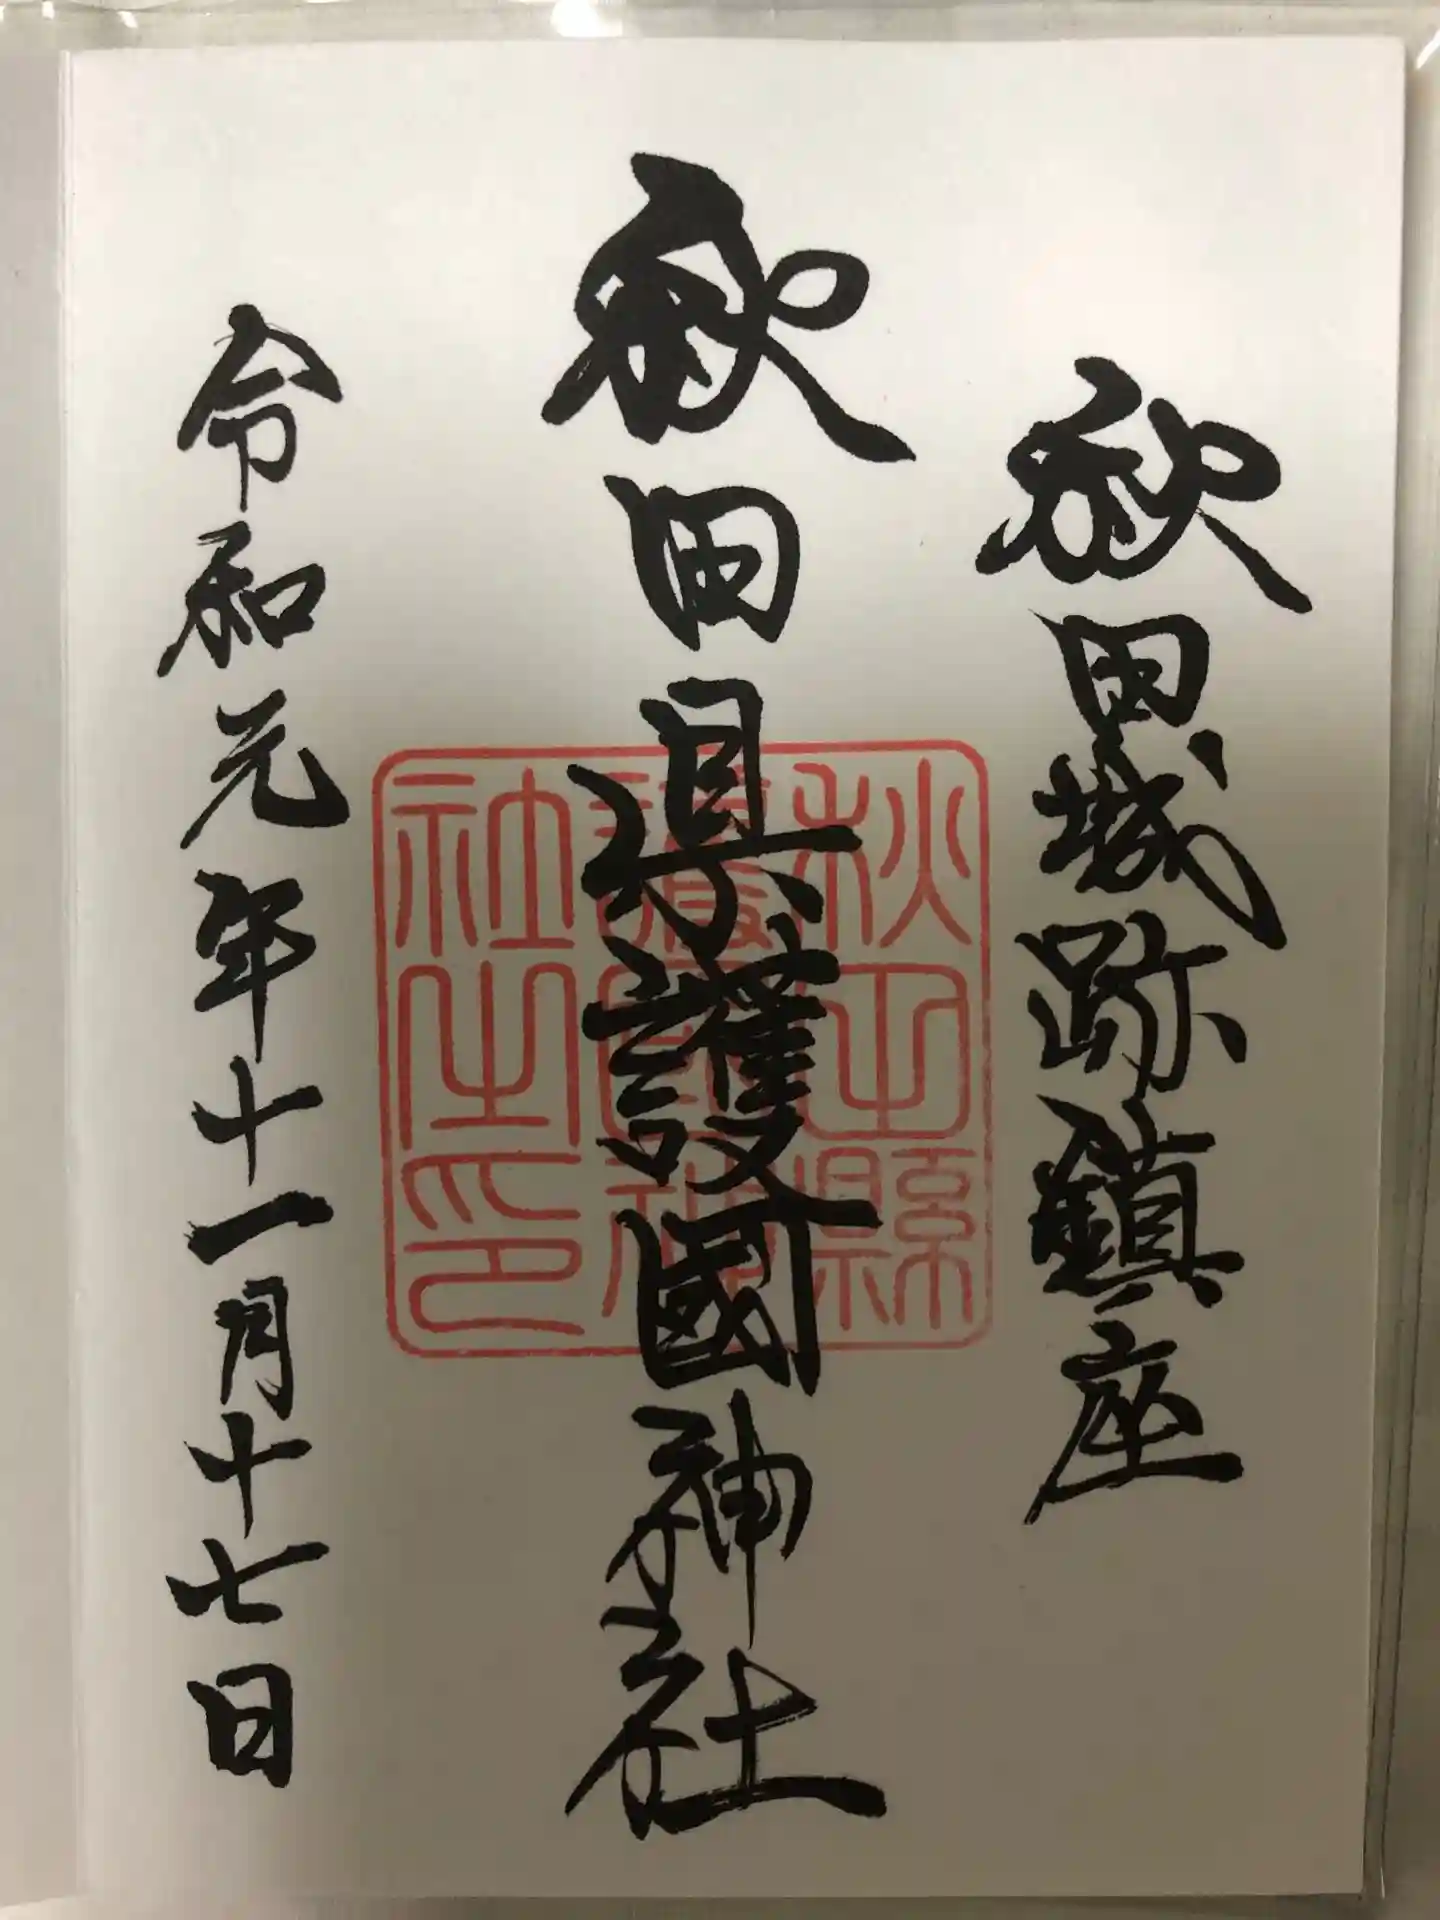 秋田城跡鎮座
秋田県護國神社
秋田縣
護國神
社之印
令和元年十一月十七日